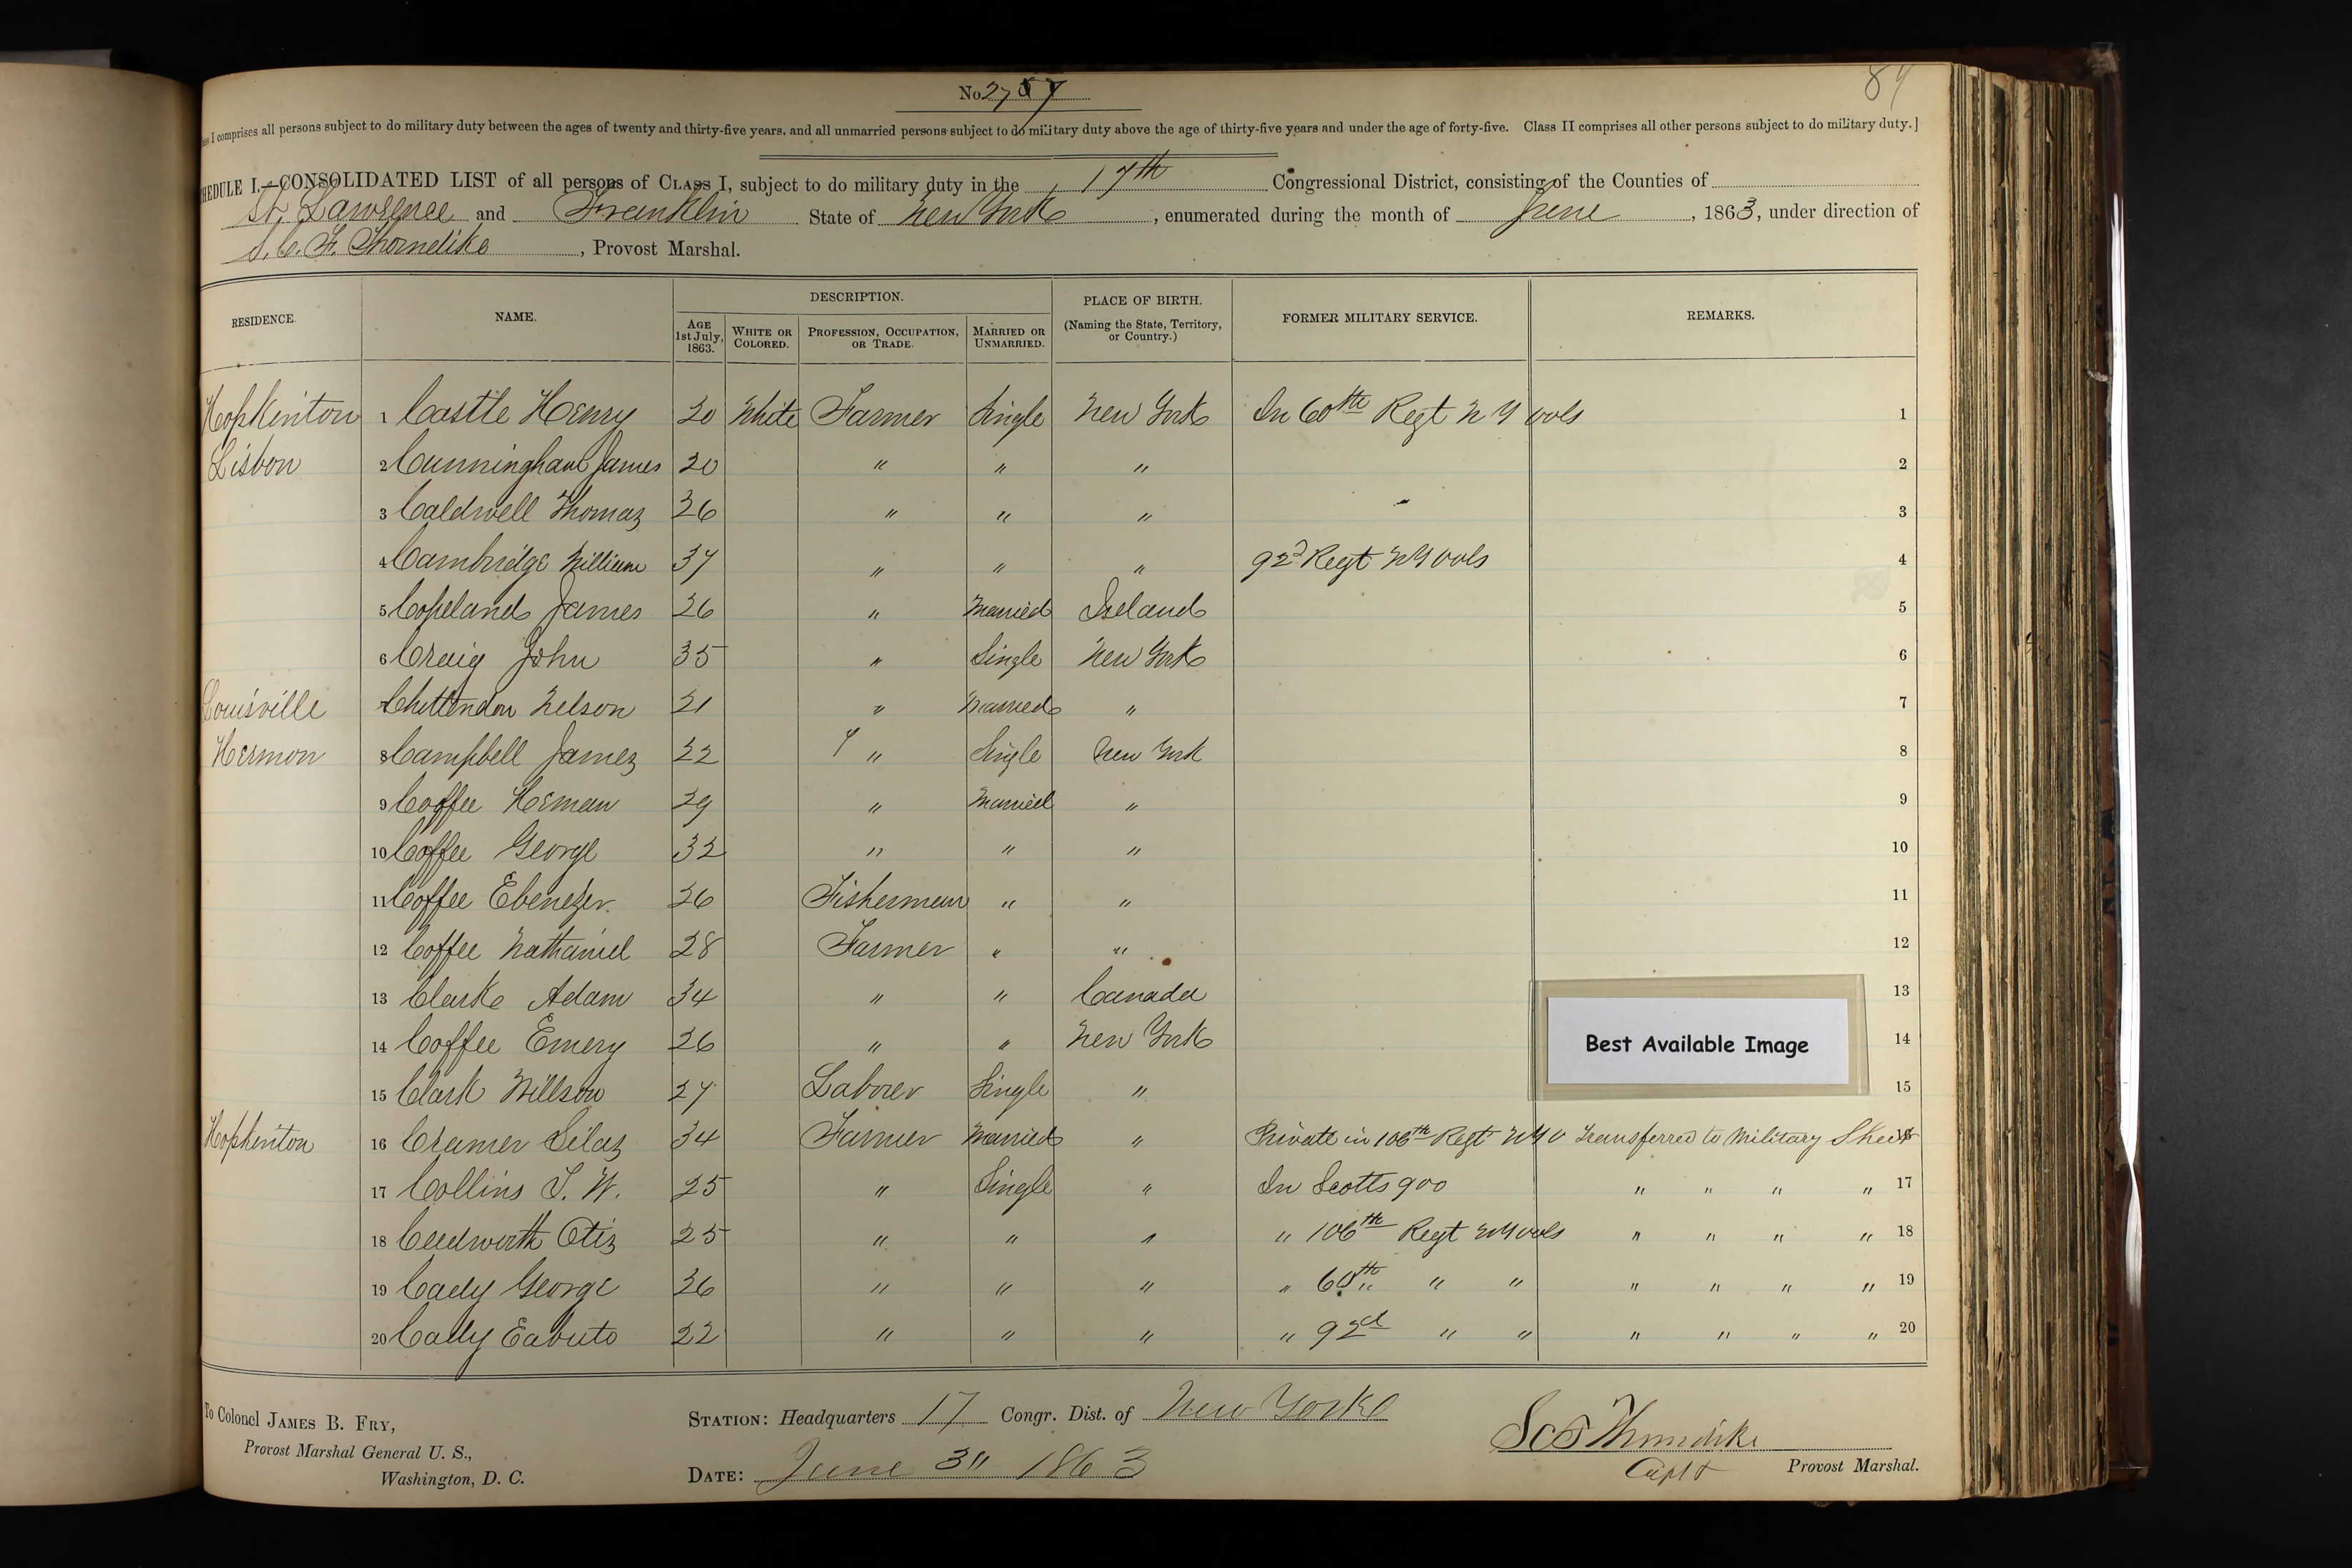 No 2757
84
ss I comprises all persons subject to do military duty between the ages of twenty and thirty-five years, and all unmarried persons subject to do military duty above the age of thirty-five years and under the age of forty-five. Class II comprises all other persons subject to do military duty.]
HEDULE I.—CONSOLIDATED LIST of all persons of CLASS I, subject to do military duty in the 17th Congressional District, consisting of the Counties of
St. Lawrence and Franklin State of New York, enumerated during the month of June, 1863, under direction of
S. C. F. Thorndike, Provost Marshal.
RESIDENCE. NAME. DESCRIPTION. PLACE OF BIRTH. (Naming the State, Territory, or Country.) FORMER MILITARY SERVICE. REMARKS.
AGE 1st July, 1863. WHITE OR COLORED. PROFESSION, OCCUPATION, OR TRADE. MARRIED OR UNMARRIED.
Hopkinton 1 Castle Henry 20 White Farmer Single New York In 60th Regt N Y vols 1
Lisbon 2 Cunningham James 20 " " " 2
3 Caldwell Thomas 26 " " " 3
4 Cambridge William 37 " " " 92d Regt NY vols 4
5 Copeland James 26 " Married Ireland 5
6 Craig John 35 " Single New York 6
Louisville 7 Chittendon Nelson 21 " Married " 7
Hermon 8 Campbell James 22 " Single New York 8
9 Coffee Heman 29 " Married " 9
10 Coffee George 32 " " " 10
11 Coffee Ebenezer 26 Fisherman " " 11
12 Coffee Nathaniel 28 Farmer " " 12
13 Clarke Adam 34 " " Canada 13
14 Coffee Emery 26 " " New York 14
15 Clark Willson 27 Laborer Single " 15
Hopkinton 16 Cramer Silas 34 Farmer Married " Private in 106th Regt NYV Transferred to Military Sheet 16
17 Collins S. W. 25 " Single " In Scotts 900 " " " " 17
18 Cudworth Otis 25 " " " " 106th Regt NY vols " " " " 18
19 Cady George 26 " " " " 60th " " " " " " 19
20 Cady 22 " " " " 92d " " " " " " 20
Best Available Image
To Colonel JAMES B. FRY,
Provost Marshal General U. S.,
Washington, D. C.
STATION: Headquarters 17 Congr. Dist. of New York
DATE: June 3" 1863
SCF Thorndike
Capt & Provost Marshal.